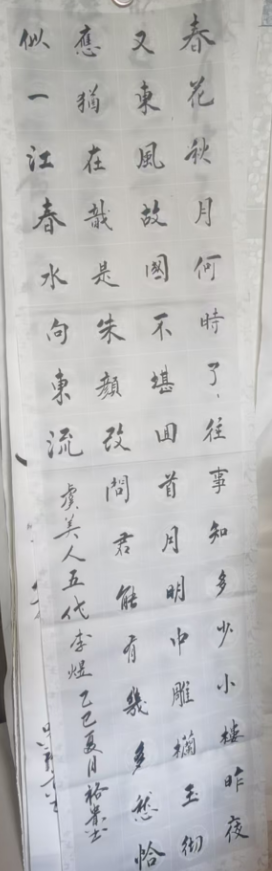 春花秋月何時了、往事知多少小樓昨夜
又東風故國不堪囬首月明中雕欄玉彻
應猶在哉是朱顏改問君能有幾多愁恰
似一江春水向東流
虞美人五代李煜乙巳夏月